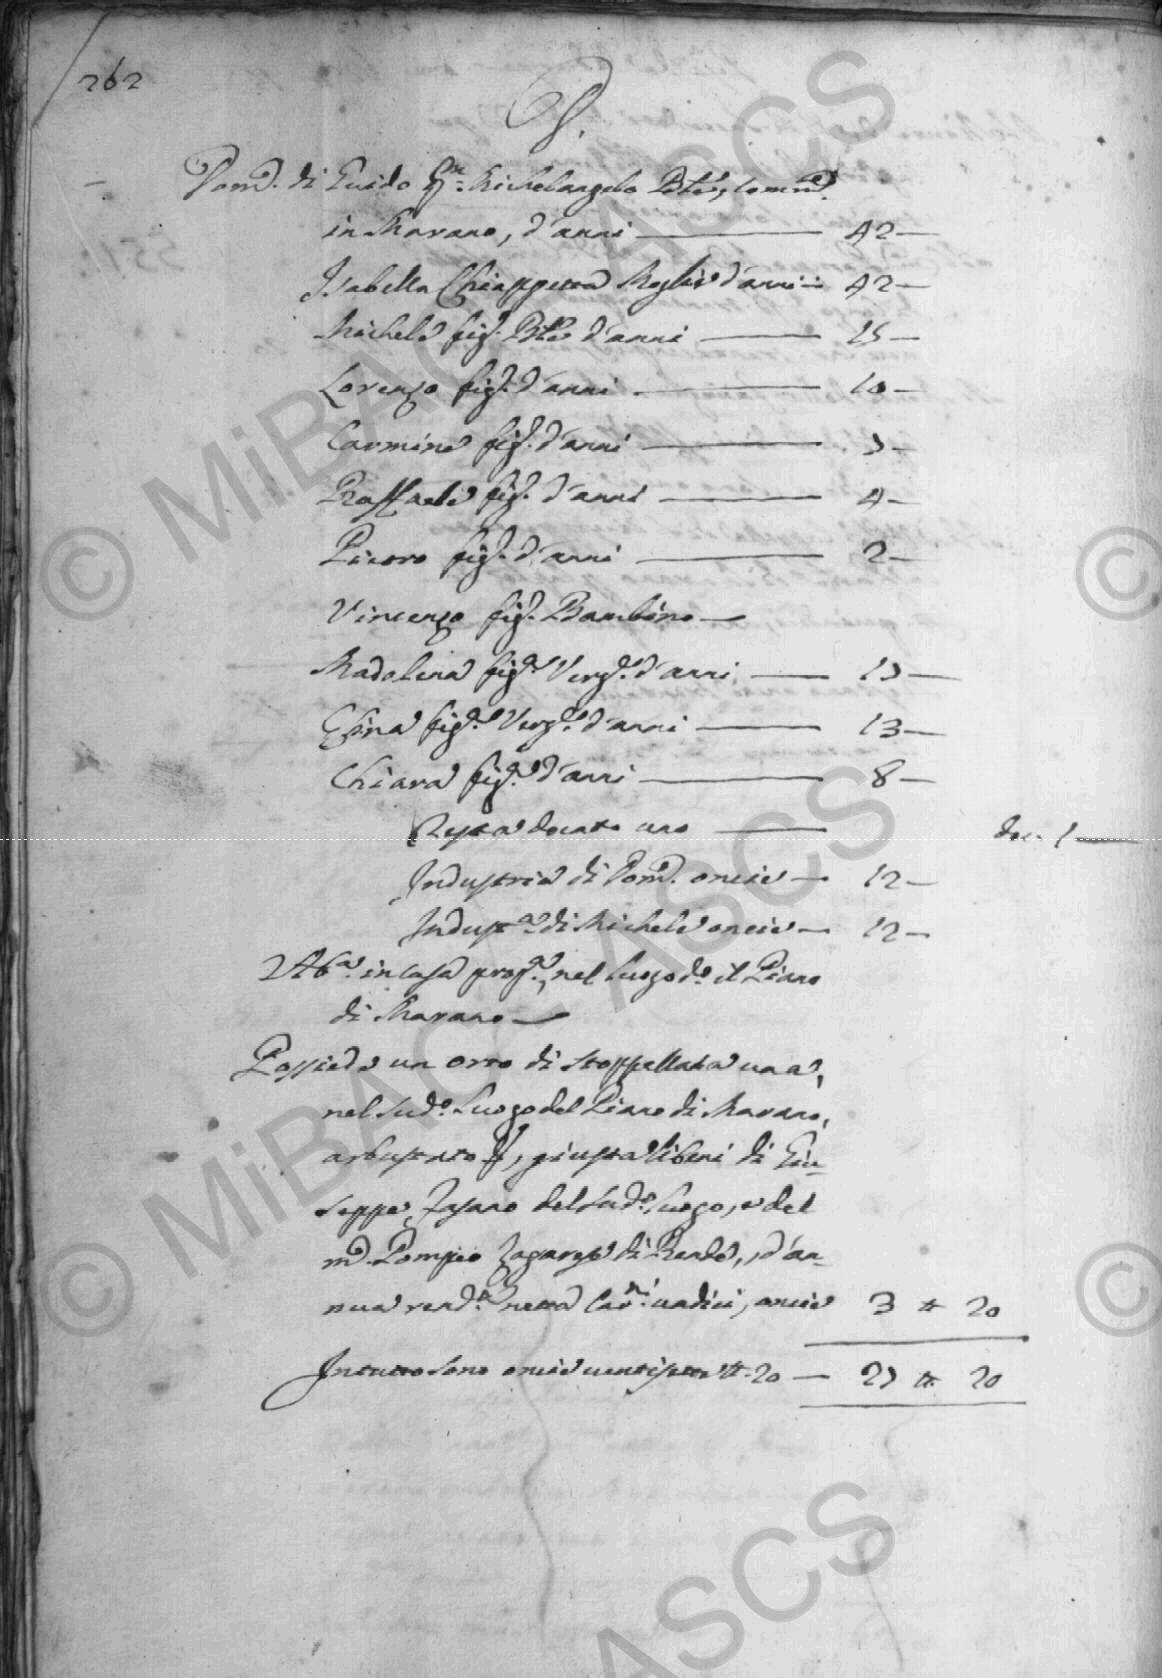 262
D.
Dom.co di Guido qm. Michelangelo Btle, comm.
in Marano, d'anni 42
Isabella Chiappetta Moglie d'anni 42
Michele fig.o Btle d'anni 15
Lorenzo fig.o d'anni 10
Carmine fig.o d'anni 7
Raffaele fig.o d'anni 4
Pietro fig.o d'anni 2
Vincenzo fig.o Bambino
Madolena fig.a Verg.e d'anni 17
fig.a Verg.e d'anni 13
Chiara fig.a d'anni 8
Testa docato uno doc. 1
Industria di Dom.co oncie 12
Indust.a di Michele oncie 12
Ab.a in casa prop.a, nel luogo d.o il Piano
di Marano
Possiede un orto di stoppellata una,
nel sud.o luogo del Piano di Marano,
arbustato, giusta li beni di Giu=
seppe Fasano del sud.o luogo, e del
m.co Pompeo Zagarese di Rende, d'an=
nua rend.a netta car.ni undici, oncie 3 # 20
In tutto sono oncie ventisette # 20 27 # 20
© MiBAC ASCS
© MiBAC ASCS
ASCS
©
©